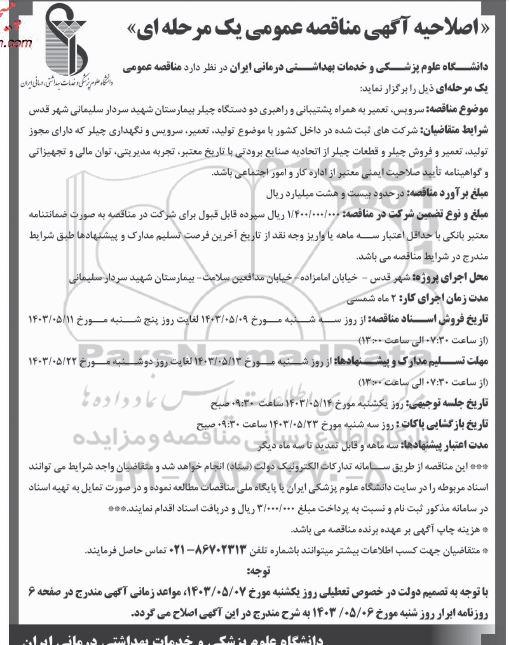 «اصلاحیه آگهی مناقصه عمومی یک مرحله ای»
دانشگاه علوم پزشکی و خدمات بهداشتی درمانی ایران
دانشگاه علوم پزشکی و خدمات بهداشتی درمانی ایران در نظر دارد مناقصه عمومی
یک مرحله‌ای ذیل را برگزار نماید:
موضوع مناقصه: سرویس، تعمیر به همراه پشتیبانی و راهبری دو دستگاه چیلر بیمارستان شهید سردار سلیمانی شهر قدس
شرایط متقاضیان: شرکت های ثبت شده در داخل کشور با موضوع تولید، تعمیر، سرویس و نگهداری چیلر که دارای مجوز
تولید، تعمیر و فروش چیلر و قطعات چیلر از اتحادیه صنایع برودتی با تاریخ معتبر، تجربه مدیریتی، توان مالی و تجهیزاتی
و گواهینامه تأیید صلاحیت ایمنی معتبر از اداره کار و امور اجتماعی باشد.
مبلغ برآورد مناقصه: در حدود بیست و هشت میلیارد ریال
مبلغ و نوع تضمین شرکت در مناقصه: ۱/۴۰۰/۰۰۰/۰۰۰ ریال سپرده قابل قبول برای شرکت در مناقصه به صورت ضمانتنامه
معتبر بانکی با حداقل اعتبار سه ماهه یا واریز وجه نقد از تاریخ آخرین فرصت تسلیم مدارک و پیشنهادها طبق شرایط
مندرج در شرایط مناقصه می باشد.
محل اجرای پروژه: شهر قدس - خیابان امامزاده- خیابان مدافعین سلامت- بیمارستان شهید سردار سلیمانی
مدت زمان اجرای کار: ۲ ماه شمسی
تاریخ فروش اسناد مناقصه: از روز سه شنبه مورخ ۱۴۰۳/۰۵/۰۹ لغایت روز پنج شنبه مورخ ۱۴۰۳/۰۵/۱۱
(از ساعت ۰۷:۳۰ الی ساعت ۱۳:۰۰)
مهلت تسلیم مدارک و پیشنهادها: از روز شنبه مورخ ۱۴۰۳/۰۵/۱۳ لغایت روز دوشنبه مورخ ۱۴۰۳/۰۵/۲۲
(از ساعت ۰۷:۳۰ الی ساعت ۱۳:۰۰)
تاریخ جلسه توجیهی: روز یکشنبه مورخ ۱۴۰۳/۰۵/۱۴ ساعت ۰۹:۳۰ صبح
تاریخ بازگشایی پاکات : روز سه شنبه مورخ ۱۴۰۳/۰۵/۲۳ ساعت ۰۹:۳۰ صبح
مدت اعتبار پیشنهادها: سه ماهه و قابل تمدید تا سه ماه دیگر
*** این مناقصه از طریق سامانه تدارکات الکترونیک دولت (ستاد) انجام خواهد شد و متقاضیان واجد شرایط می توانند
اسناد مربوطه را در سایت دانشگاه علوم پزشکی ایران یا پایگاه ملی مناقصات مطالعه نموده و در صورت تمایل به تهیه اسناد
در سامانه مذکور ثبت نام و نسبت به پرداخت مبلغ ۳/۰۰۰/۰۰۰ ریال و دریافت اسناد اقدام نمایند.***
* هزینه چاپ آگهی بر عهده برنده مناقصه می باشد.
* متقاضیان جهت کسب اطلاعات بیشتر میتوانند باشماره تلفن ۸۶۷۰۲۳۱۳-۰۲۱ تماس حاصل فرمایند.
توجه:
با توجه به تصمیم دولت در خصوص تعطیلی روز یکشنبه مورخ ۱۴۰۳/۰۵/۰۷، مواعد زمانی آگهی مندرج در صفحه ۶
روزنامه ابرار روز شنبه مورخ ۰۶/ ۰۵/ ۱۴۰۳ به شرح مندرج در این آگهی اصلاح می گردد.
دانشگاه علوم پزشکی و خدمات بهداشتی درمانی ایران
ParsNamadData
۰۲۱-۸۸۳۴۹۶۷۰-۵